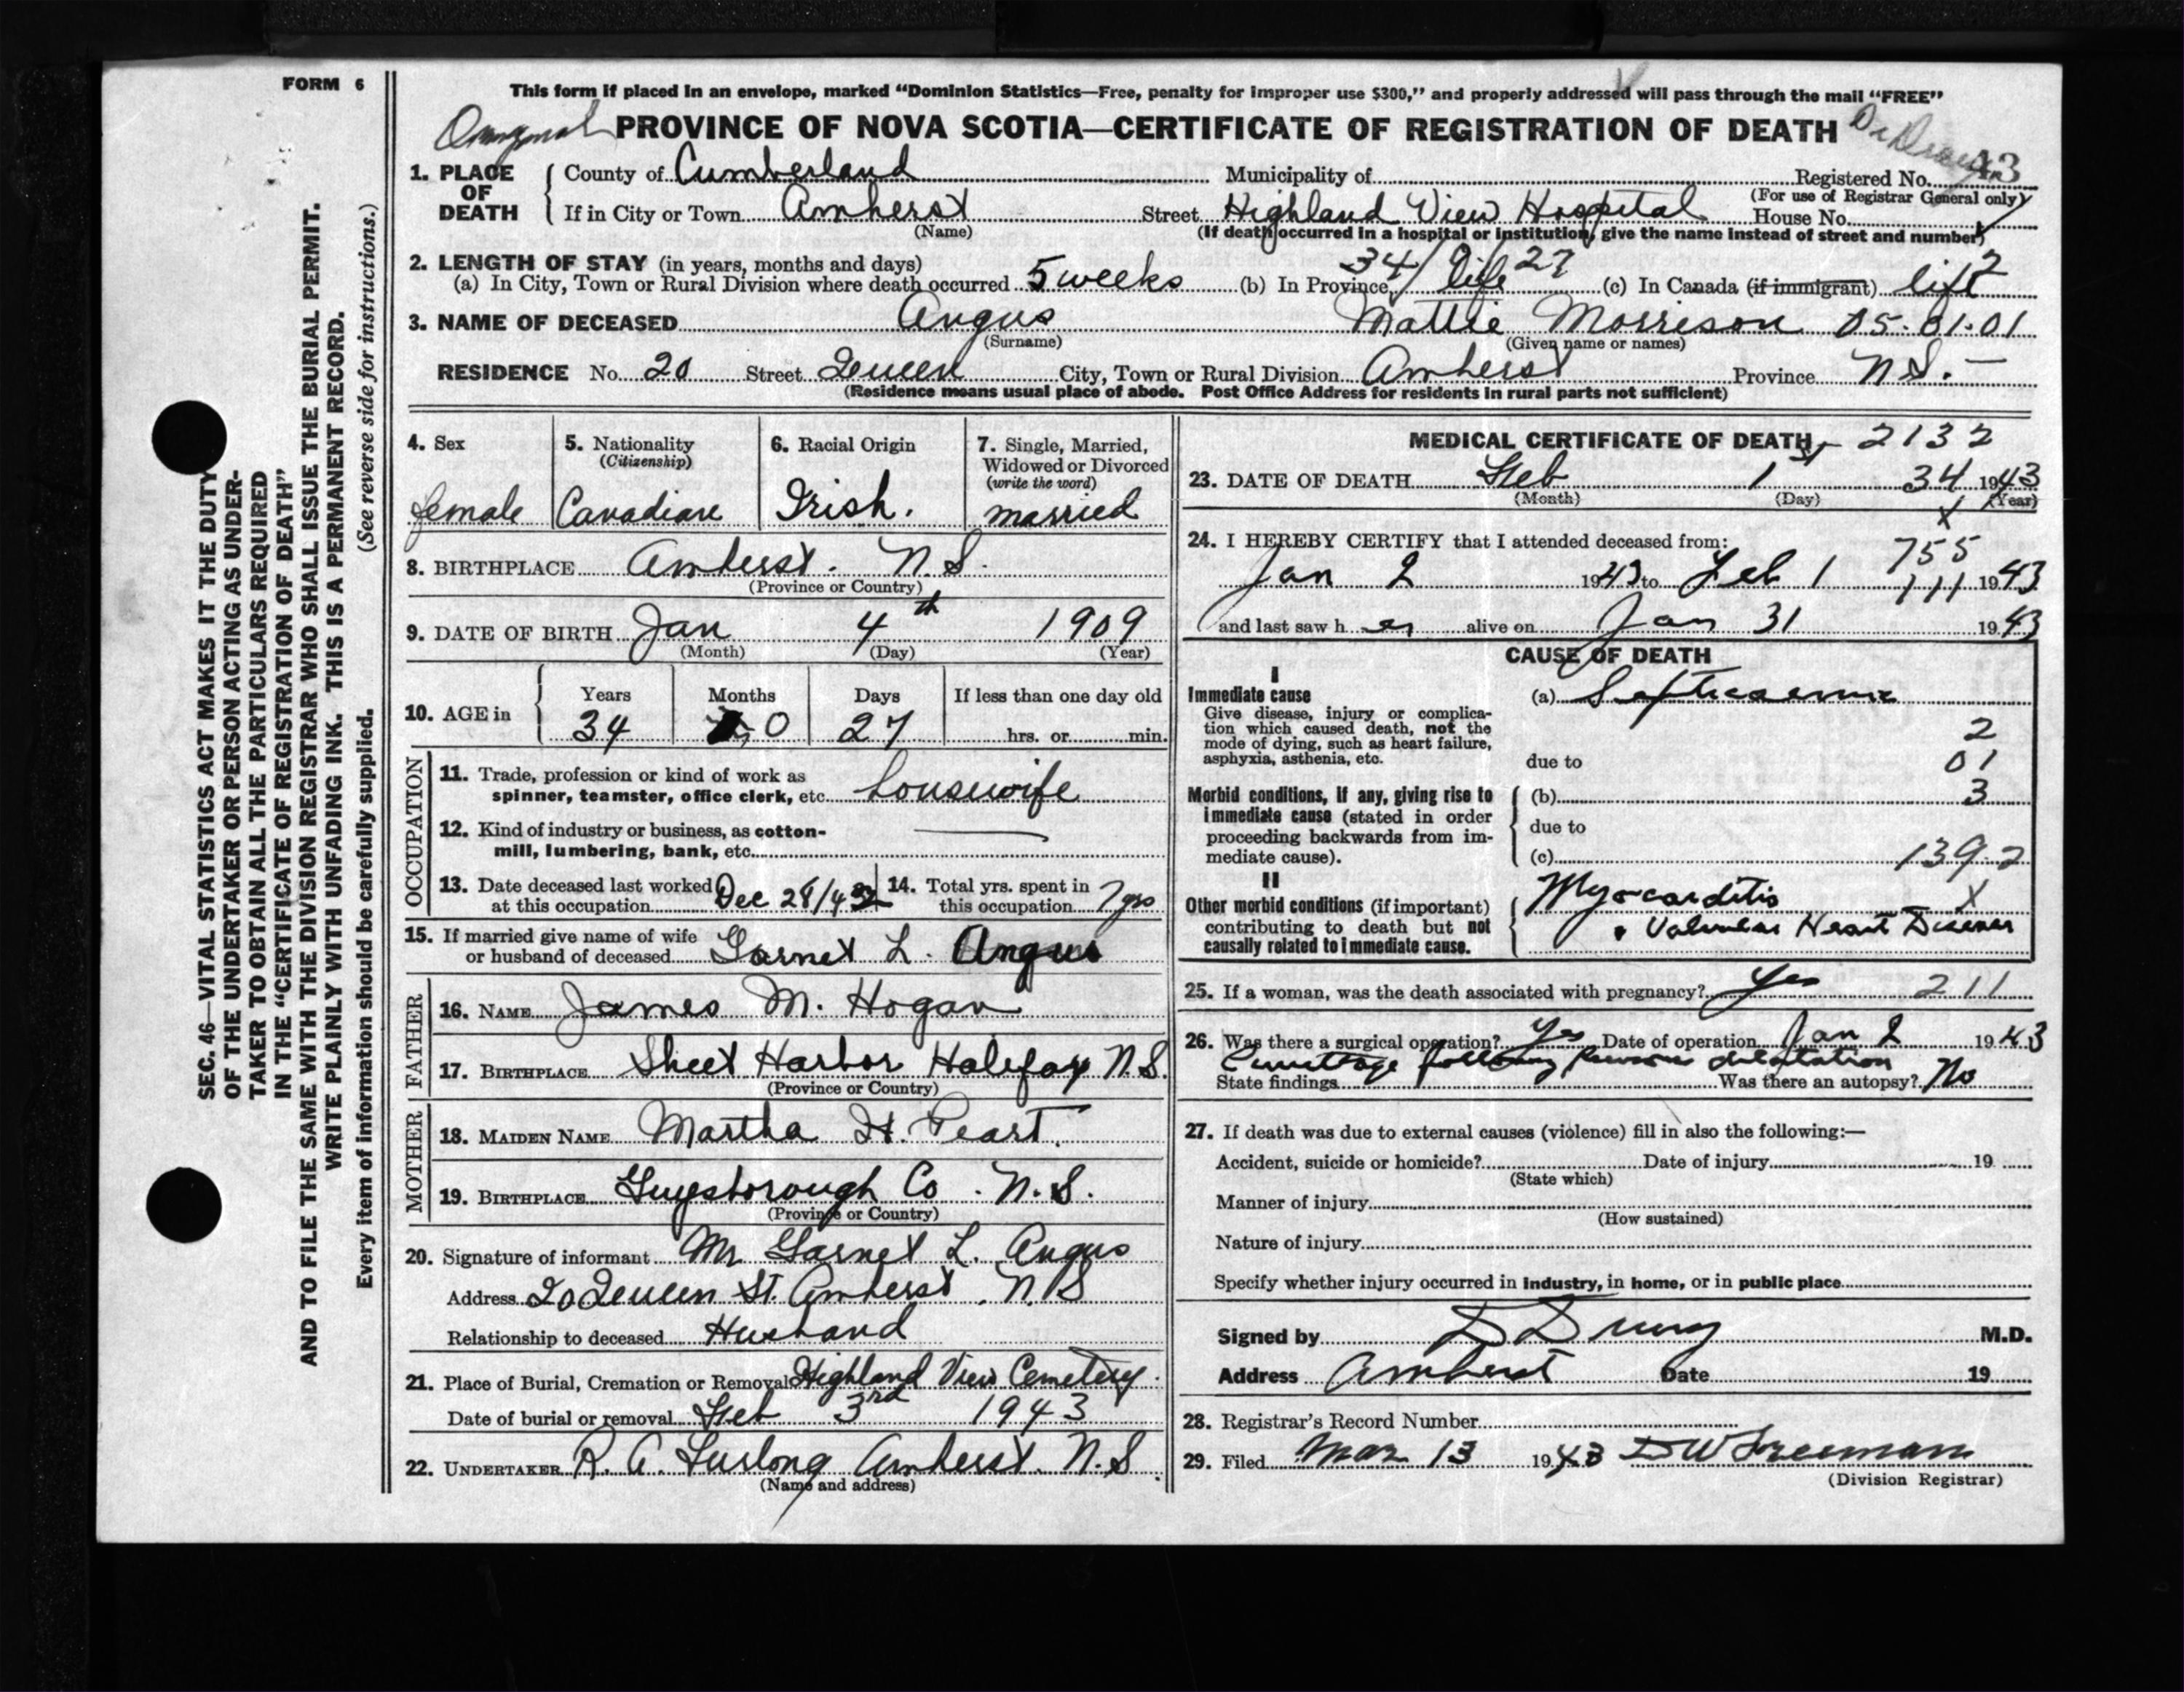 FORM 6
This form if placed in an envelope, marked “Dominion Statistics—Free, penalty for improper use $300,” and properly addressed will pass through the mail “FREE”
Original PROVINCE OF NOVA SCOTIA—CERTIFICATE OF REGISTRATION OF DEATH
1. PLACE OF DEATH
County of Cumberland Municipality of Registered No. 43
(For use of Registrar General only)
If in City or Town Amherst Street Highland View Hospital House No.
(Name) (If death occurred in a hospital or institution, give the name instead of street and number)
2. LENGTH OF STAY (in years, months and days) 34/0/27
(a) In City, Town or Rural Division where death occurred 5 weeks (b) In Province life (c) In Canada (if immigrant) life 2
3. NAME OF DECEASED Angus Mattie Morrison 05.01.01
(Surname) (Given name or names)
RESIDENCE No. 20 Street Queen City, Town or Rural Division Amherst Province N.S. —
(Residence means usual place of abode. Post Office Address for residents in rural parts not sufficient)
4. Sex
female
5. Nationality
(Citizenship)
Canadian
6. Racial Origin
Irish.
7. Single, Married,
Widowed or Divorced
(write the word)
married
8. BIRTHPLACE Amherst. N.S.
(Province or Country)
9. DATE OF BIRTH Jan 4th 1909
(Month) (Day) (Year)
10. AGE in
Years Months Days If less than one day old
34 0 27 hrs. or min.
OCCUPATION
11. Trade, profession or kind of work as
spinner, teamster, office clerk, etc. housewife
12. Kind of industry or business, as cotton-
mill, lumbering, bank, etc. —
13. Date deceased last worked
at this occupation Dec 28/42
14. Total yrs. spent in
this occupation 7 yrs
15. If married give name of wife
or husband of deceased Garnet L. Angus
FATHER
16. NAME James M. Hogan
17. BIRTHPLACE Sheet Harbor Halifax N.S.
(Province or Country)
MOTHER
18. MAIDEN NAME Martha H. Peart.
19. BIRTHPLACE Guysborough Co. N.S.
(Province or Country)
20. Signature of informant Mr Garnet L. Angus
Address 20 Queen St. Amherst. N.S
Relationship to deceased Husband
21. Place of Burial, Cremation or Removal Highland View Cemetery.
Date of burial or removal Feb 3rd 1943
22. UNDERTAKER R. A. Furlong Amherst. N.S.
(Name and address)
MEDICAL CERTIFICATE OF DEATH - 2132
23. DATE OF DEATH Feb 1st 34 1943
(Month) (Day) (Year)
X
24. I HEREBY CERTIFY that I attended deceased from: 755
Jan 2 1943 to Feb 1 111 1943
and last saw her alive on Jan 31 1943
CAUSE OF DEATH
I
Immediate cause
Give disease, injury or complica-
tion which caused death, not the
mode of dying, such as heart failure,
asphyxia, asthenia, etc.
(a) Septicaemia
2
due to 01
Morbid conditions, if any, giving rise to
immediate cause (stated in order
proceeding backwards from im-
mediate cause).
(b) 3
due to
(c) 139.2
II
Other morbid conditions (if important)
contributing to death but not
causally related to immediate cause.
Myocarditis X
Valvular Heart Disease
25. If a woman, was the death associated with pregnancy? Yes 211
26. Was there a surgical operation? Yes Date of operation Jan 2 1943
Curettage following previous
State findings Was there an autopsy? No
27. If death was due to external causes (violence) fill in also the following:—
Accident, suicide or homicide? Date of injury 19
(State which)
Manner of injury
(How sustained)
Nature of injury
Specify whether injury occurred in industry, in home, or in public place
Signed by M.D.
Address Amherst Date 19
28. Registrar's Record Number
29. Filed Mar 13 1943 D W Freeman
(Division Registrar)
SEC. 46—VITAL STATISTICS ACT MAKES IT THE DUTY
OF THE UNDERTAKER OR PERSON ACTING AS UNDER-
TAKER TO OBTAIN ALL THE PARTICULARS REQUIRED
IN THE “CERTIFICATE OF REGISTRATION OF DEATH”
AND TO FILE THE SAME WITH THE DIVISION REGISTRAR WHO SHALL ISSUE THE BURIAL PERMIT.
WRITE PLAINLY WITH UNFADING INK. THIS IS A PERMANENT RECORD.
Every item of information should be carefully supplied. (See reverse side for instructions.)